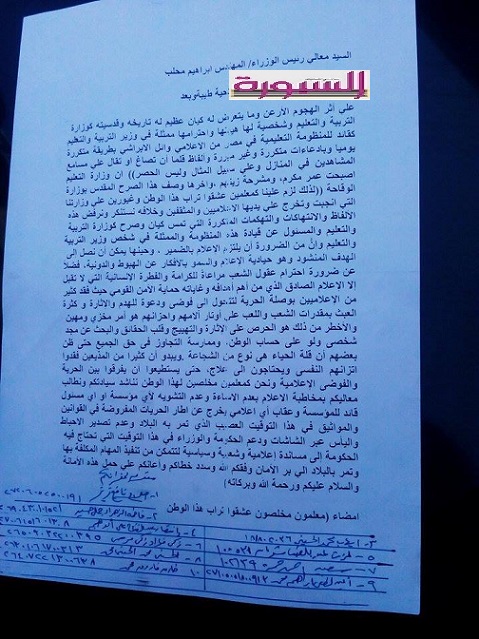 السيد معالي رئيس الوزراء/ المهندس ابراهيم محلب
السبورة
تحية طيبة وبعد
على إثر الهجوم الأرعن وما يتعرض له كيان عظيم له تاريخه وقدسيته كوزارة
التربية والتعليم وشخصية لها هيبتها واحترامها ممثلة في وزير التربية والتعليم
كقائد للمنظومة التعليمية في مصر من الاعلامي وائل الابراشي بطريقة متكررة
يوميا وبادعاءات متكررة وغير مبررة وألفاظ قلما أن تصاغ او تقال علي مسامع
المشاهدين في المنازل وعلي سبيل المثال وليس الحصر(( ان وزارة التعليم
اصبحت عمر مكرم، ومشرحة زينهم، واخرها وصف هذا الصرح المقدس بوزارة
الوقاحة ((لذلك لزم علينا كمعلمين عشقوا تراب هذا الوطن وغيورين علي وزارتنا
التي انجبت وتخرج علي يديها الاعلاميين والمثقفين وخلافه نستنكر ونرفض هذه
الألفاظ والانتهاكات والتهكمات المتكررة التي تمس كيان وصرح كوزارة التربية
والتعليم والمسئول عن قيادة هذه المنظومة والممثلة في شخص وزير التربية
والتعليم وأن من الضرورة أن يلتزم الاعلام بالضمير . وحينها يمكن أن نصل الى
الهدف المنشود وهو حيادية الاعلام والسمو بالأفكار عن الهبوط والدونية. فضلا
عن ضرورة احترام عقول الشعب مراعاة للكرامة والفطرة الانسانية التي لا تقبل
إلا الاعلام الصادق الذي من أهم أهدافه وغاياته حماية الأمن القومي حيث فقد كثير
من الاعلاميين بوصلة الحرية لتتحول الى فوضى ودعوة للهدم والاثارة و كثرة
العبث بمقدرات الشعب واللعب على أوتار آلامهم واحزانهم هو أمر مخزي ومهين
والأخطر من ذلك هو الحرص على الاثارة والتهييج وقلب الحقائق والبحث عن مجد
شخصى ولو على حساب الوطن، وممارسة التجاوز في حق الجميع حتى ظن
بعضهم أن قلة الحياء هى نوع من الشجاعة .ويبدو أن كثيرا من المذيعين فقدوا
اتزانهم النفسى ويحتاجون الى علاج، حتى يستطيعوا ان يفرقوا بين الحرية
والفوضى الاعلامية ونحن كمعلمين مخلصين لهذا الوطن نناشد سيادتكم ونطالب
معاليكم بمخاطبة الاعلام بعدم الاساءة وعدم التشويه لأي مؤسسة او اي مسئول
قائد للمؤسسة وعقاب أي اعلامي يخرج عن اطار الحريات المفروضة في القوانين
والمواثيق في هذا التوقيت العصيب الذي تمر به البلاد وعدم تصدير الاحباط
واليأس عبر الشاشات ودعم الحكومة والوزراء في هذا التوقيت التي تحتاج فيه
الحكومة الى مساندة إعلامية وشعبية وسياسية لتتمكن من تنفيذ المهام المكلفة بها
وتمر بالبلاد الي بر الأمان وفقكم الله وسدد خطاكم وأعانكم علي حمل هذه الأمانة
والسلام عليكم ورحمة الله وبركاته)
امضاء (معلمون مخلصون عشقوا تراب هذا الوطن